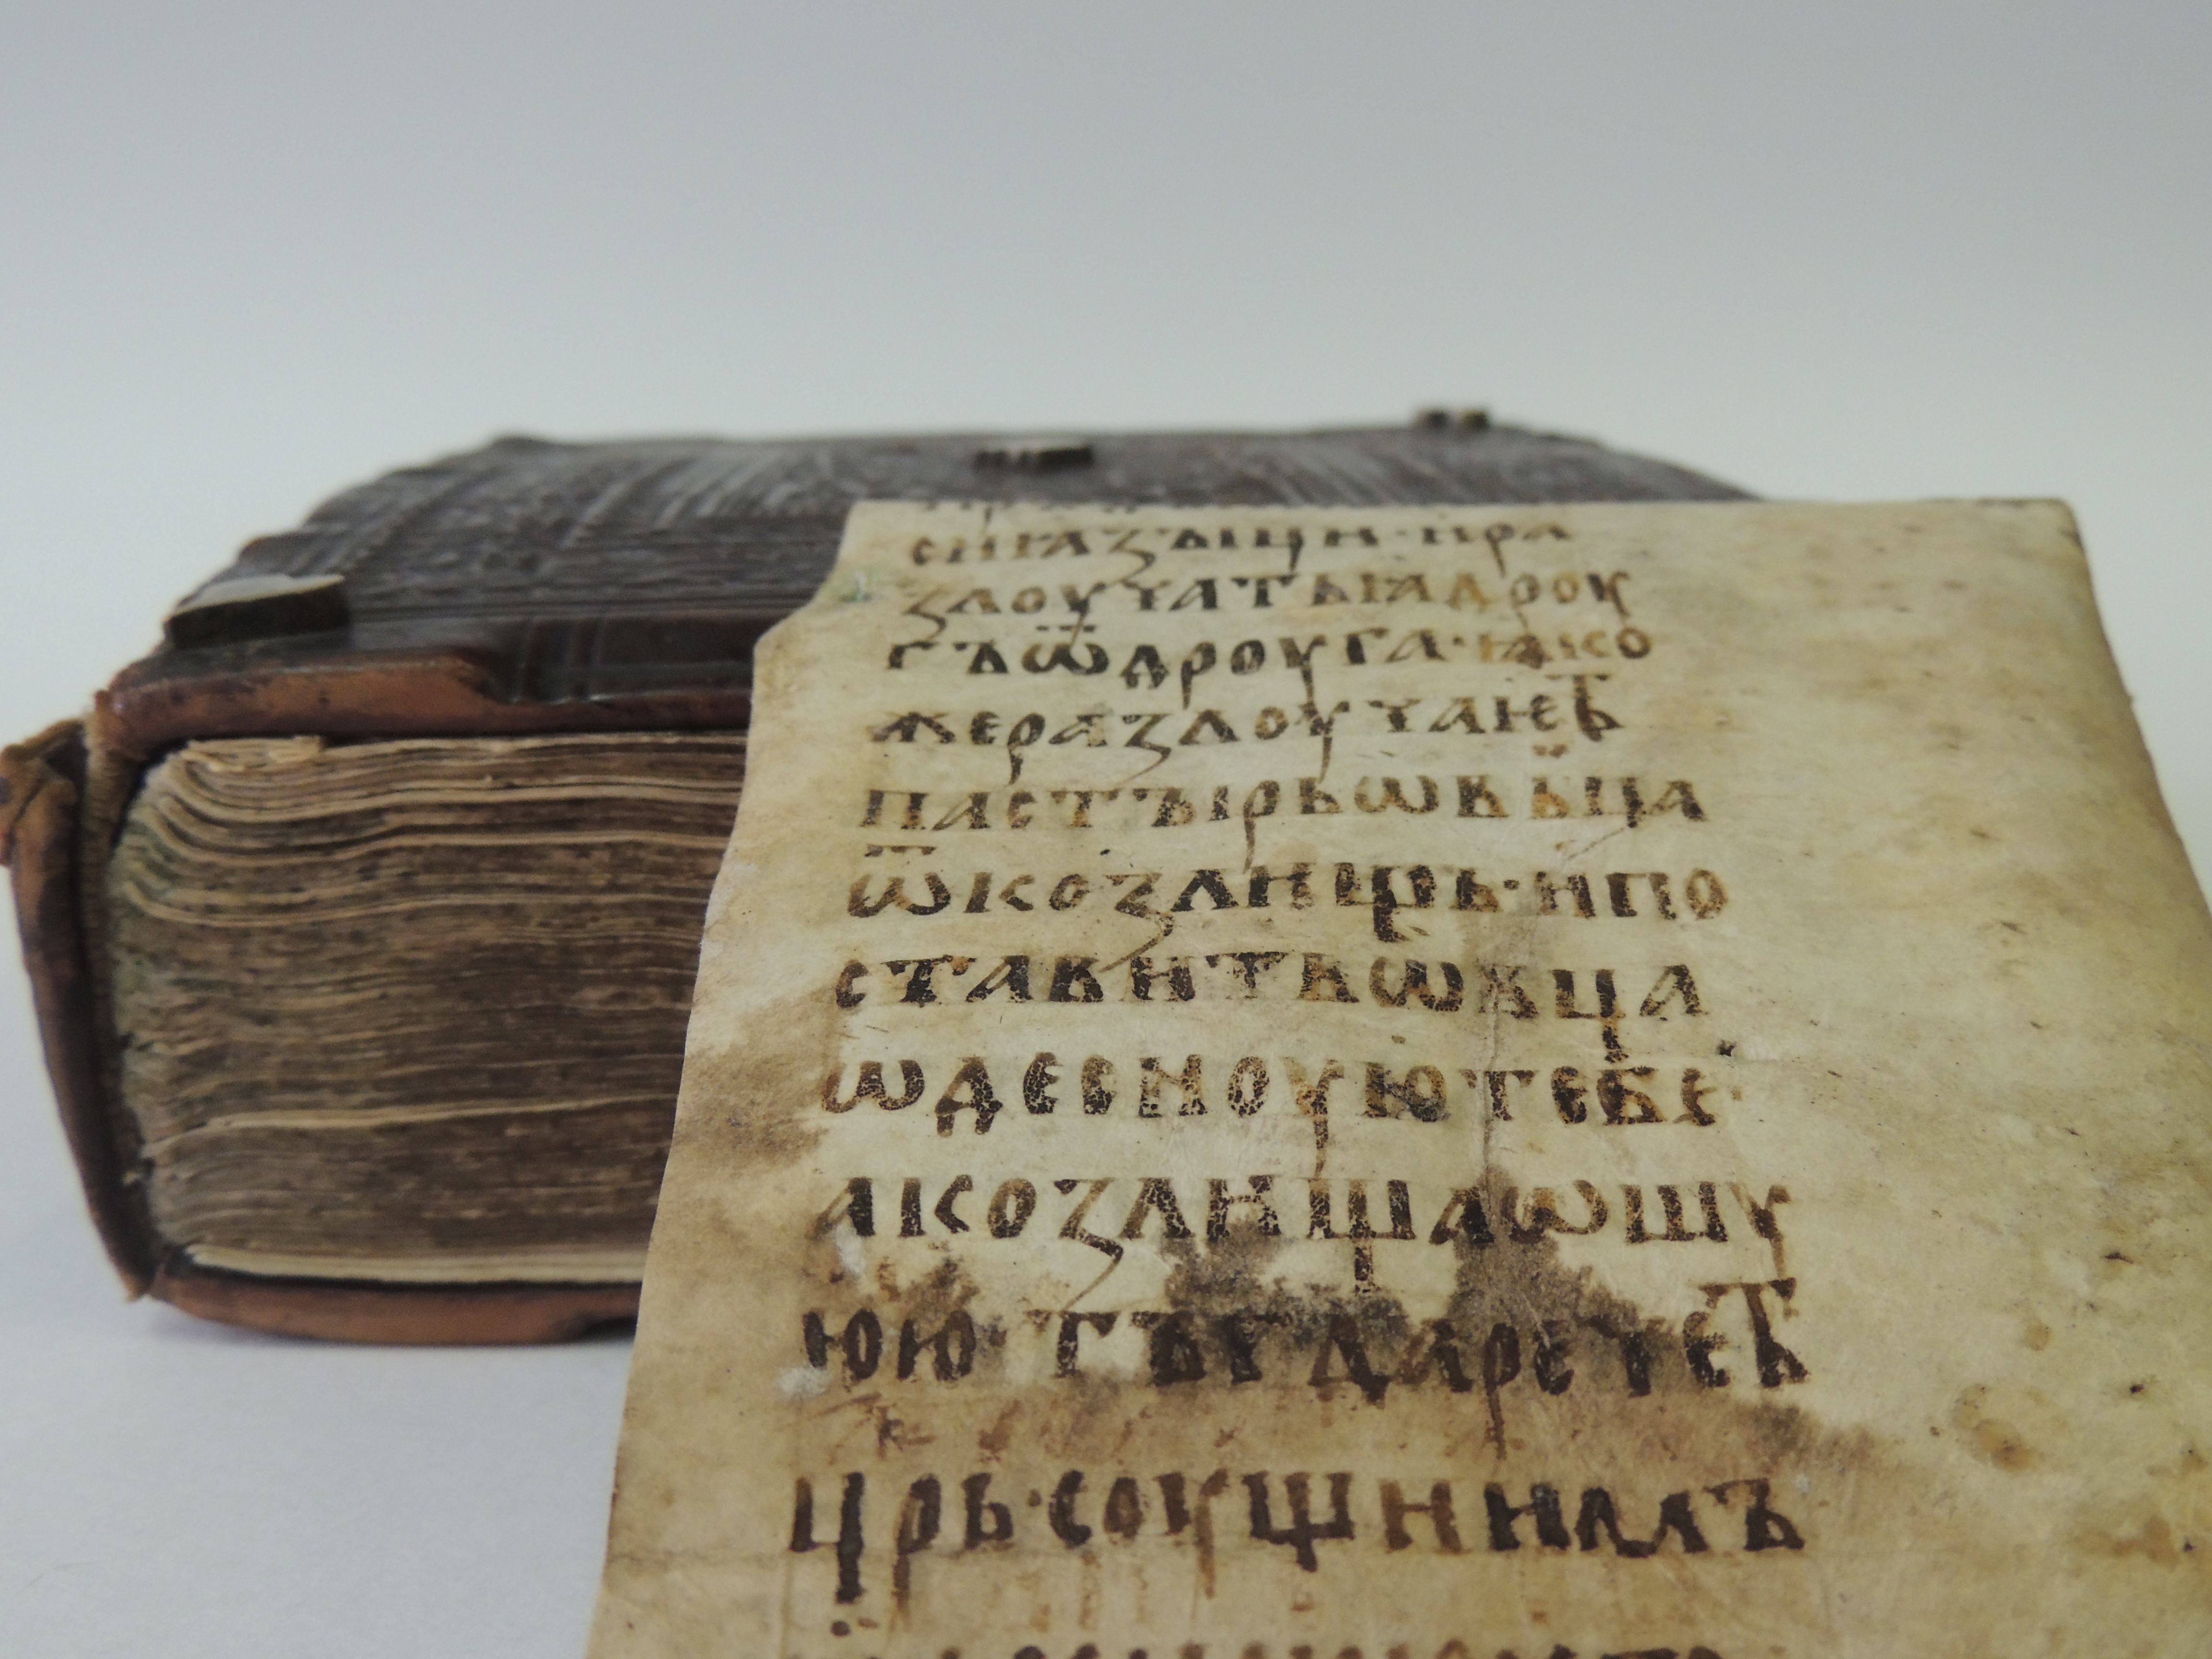 си ꙗзꙑци · и ра
злоучать ꙗ дроу
гъ ѿ дроуга · ꙗко
же разлоучаѥть
пастꙑрь ѡвьца
ѿ козлищь · и по
ставить ѡвьца
ѡ десноую тебе ·
а козлища ѡ шу
юю · тъгда речеть
црь · соущиимъ